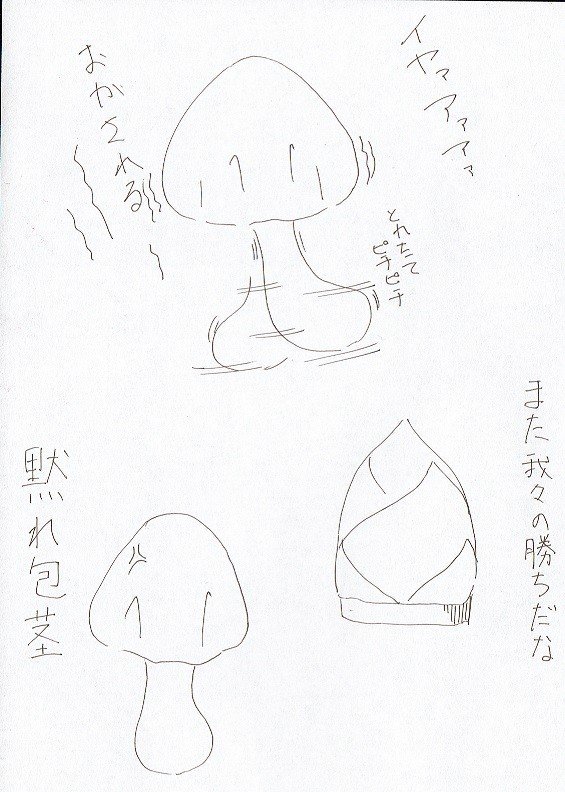 イヤマアァアァ
おかされる
とれたて
ピチピチ
また我々の勝ちだな
黙れ包茎